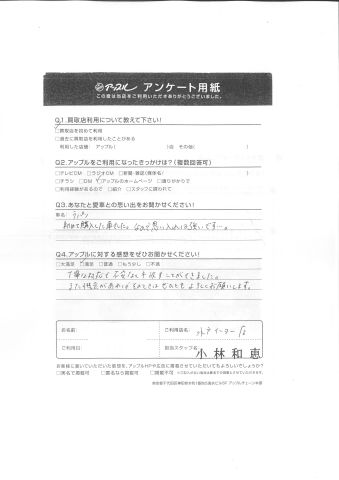 アップル アンケート用紙
この度は当店をご利用いただきありがとうございました。
Q.1 買取店利用について教えて下さい!
□買取店を初めて利用
□過去に買取店を利用したことがある
利用した店舗( アップル/ )他 その他( )
Q.2 アップルをご利用になったきっかけは?(複数回答可)
□テレビCM □ラジオCM □新聞・雑誌(媒体名/ )
□チラシ □DM □アップルのホームページ □通りがかりで
□利用経験があるので □紹介 □スタッフに誘われて
Q.3 あなたと愛車との思い出をお聞かせください!
車名:
初めて購入した車でした。なので思い入れは強いです…。
Q.4 アップルに対する感想をぜひお聞かせください!
□大満足 □満足 □普通 □もう少し □不満
丁寧な対応で不安なく手放すことができました。
また機会があればそのときはぜひともよろしくお願いします。
お名前:
ご利用店名:
ご利用日:
担当スタッフ名:
小林和恵
お客様に書いていただいた感想を、アップルHPや広告に掲載させていただいてもよろしいでしょうか?
□実名で掲載可 □匿名なら掲載可 □掲載不可